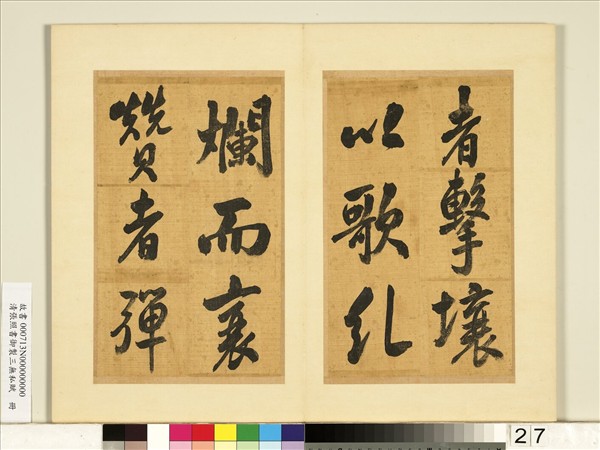 者擊壤
以歌糺
爛而襄
贊者彈
故書 000713N000000000
清張照書御製三無私賦 冊
27